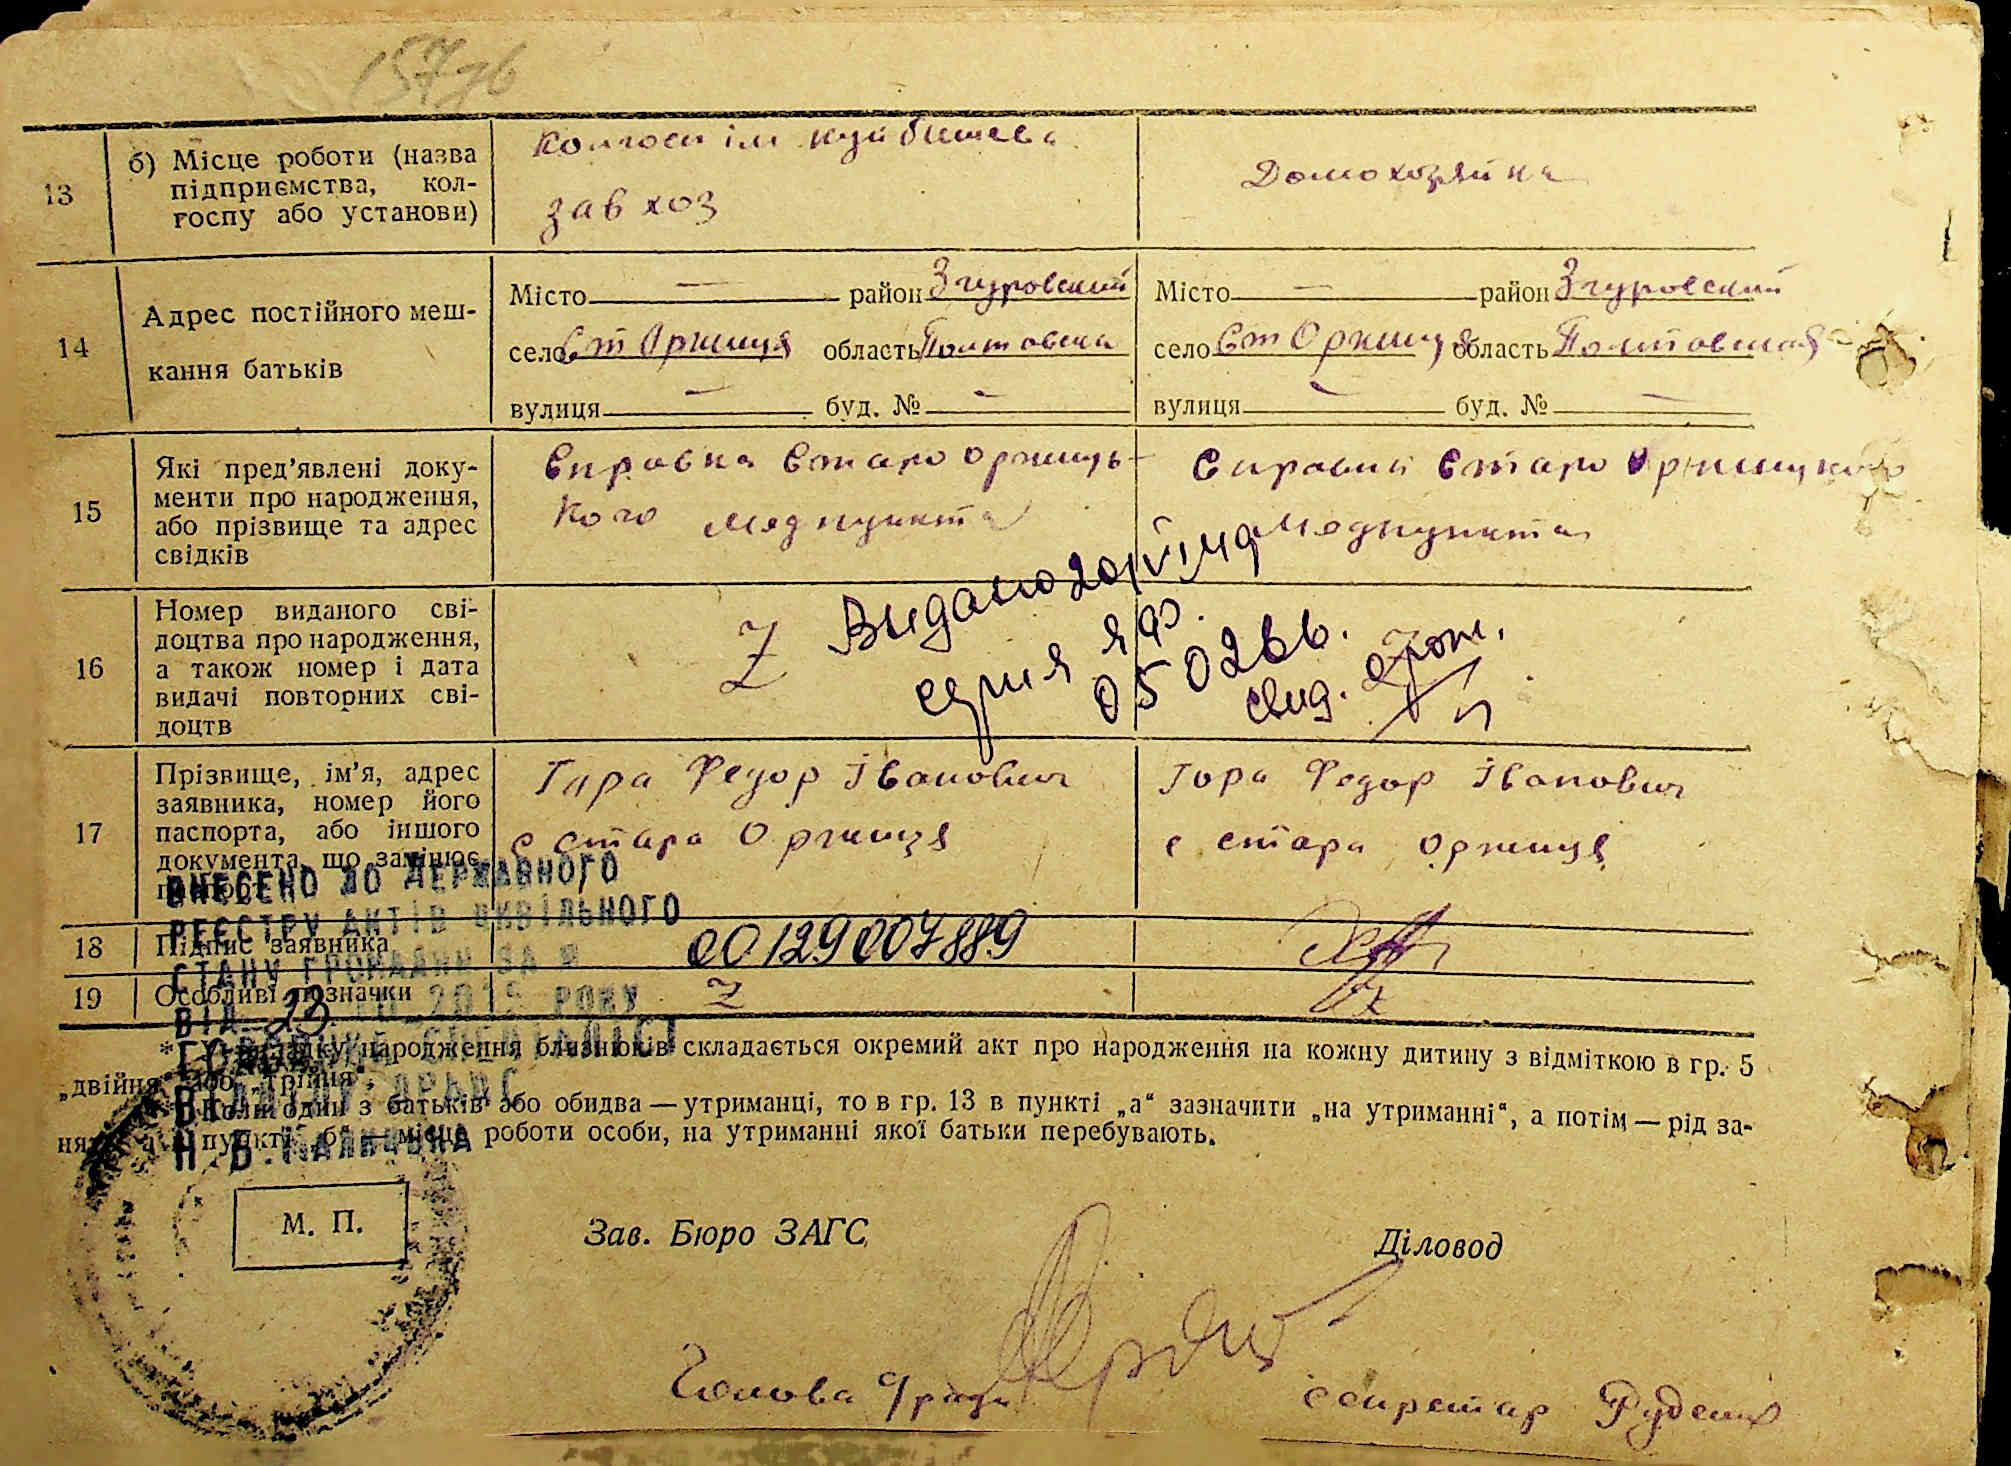 157 зв
13
б) Місце роботи (назва
підприємства, кол-
госпу або установи)
Колгосп ім Куйбишева
завхоз
Домохозяйка
14
Адрес постійного меш-
кання батьків
Місто — район Згуровский
село Ст Оржиця область Полтовска
вулиця — буд. № —
Місто — район Згуровский
село Ст Оржиця область Полтовская
вулиця — буд. № —
15
Які пред’явлені доку-
менти про народження,
або прізвище та адрес
свідків
Справка Старооржиць-
кого медпункта
Справки Старо Оржицкого
медпункта
16
Номер виданого сві-
доцтва про народження,
а також номер і дата
видачі повторних сві-
доцтв
Z
Видано
серия
050266.
свид.
17
Прізвище, ім’я, адрес
заявника, номер його
паспорта, або іншого
документа, що замінює
Гора Федор Іванович
с Стара Оржиця
Гора Федор Іванович
с Стара Оржиця
18
Підпис заявника
00129007889
19
Особливі позначки
Z
Z
ВНЕСЕНО ДО ДЕРЖАВНОГО
РЕЄСТРУ АКТІВ ЦИВІЛЬНОГО
СТАНУ ГРОМАДЯН ЗА №
ВІД 23 РОКУ
ГОЛОВ. СПЕЦІАЛІСТ
ВІДДІЛУ ДРАЦС
Н.Б.
* народження близнюків складається окремий акт про народження на кожну дитину з відміткою в гр. 5
„двійня“ або „трійня“.
** Коли один з батьків або обидва — утриманці, то в гр. 13 в пункті „а“ зазначити „на утриманні“, а потім — рід за-
няття, а в пункті „б“ — місце роботи особи, на утриманні якої батьки перебувають.
М. П.
Зав. Бюро ЗАГС
Діловод
Голова с/ради
секретар